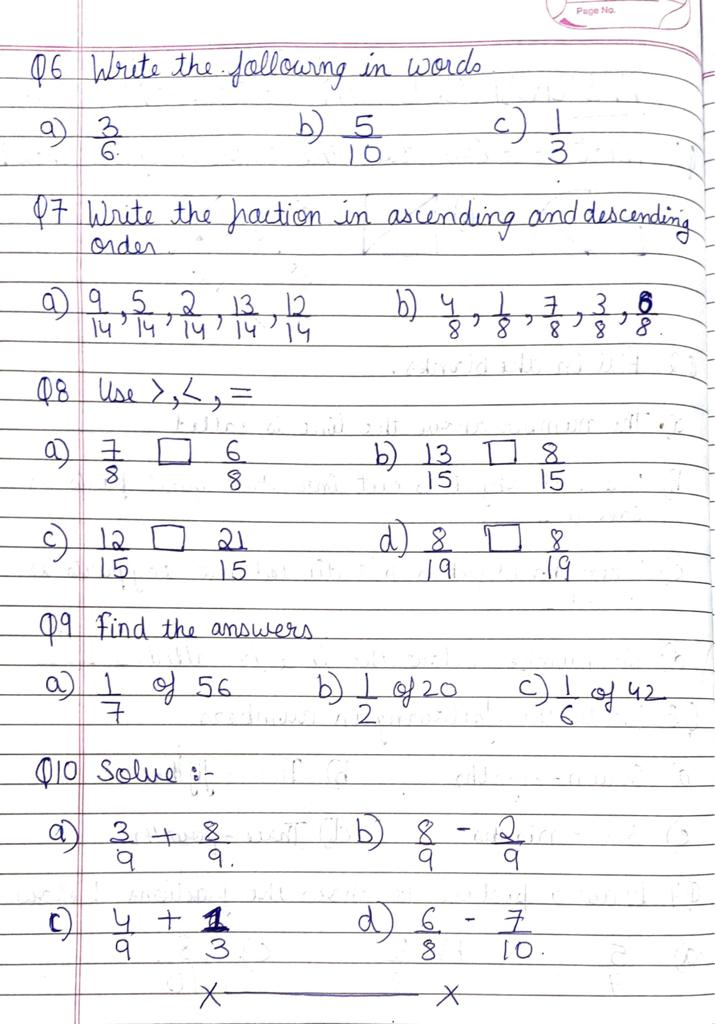 Page No.
Q6 Write the following in words
a) 3/6 b) 5/10 c) 1/3
Q7 Write the fraction in ascending and descending
order
a) 9/14, 5/14, 2/14, 13/14, 12/14 b) 4/8, 1/8, 7/8, 3/8, 6/8.
Q8 Use >, <, =
a) 7/8 □ 6/8 b) 13/15 □ 8/15
c) 12/15 □ 21/15 d) 8/19 □ 8/19
Q9 Find the answers
a) 1/7 of 56 b) 1/2 of 20 c) 1/6 of 42
Q10 Solve :-
a) 3/9 + 8/9. b) 8/9 - 2/9
c) 4/9 + 1/3 d) 6/8 - 7/10.
x———x